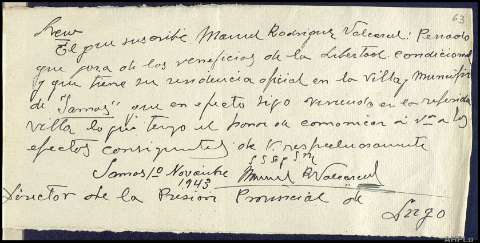 63
El que suscribe Manuel Rodriguez Valcarcel: Penado
que goza de los beneficios de la libertad condicional
y que tiene su residencia oficial en la Villa y Municipio
de "Samos" que en efecto sigo viviendo en la referida
villa lo que tengo el honor de comonicar á Vª a los
efectos consiguentes de V. respetuosamente
Samos 1º Noviembre
1943 Manuel R. Valcarcel
Director de la Presion Provincial de
Lugo
AHPLU